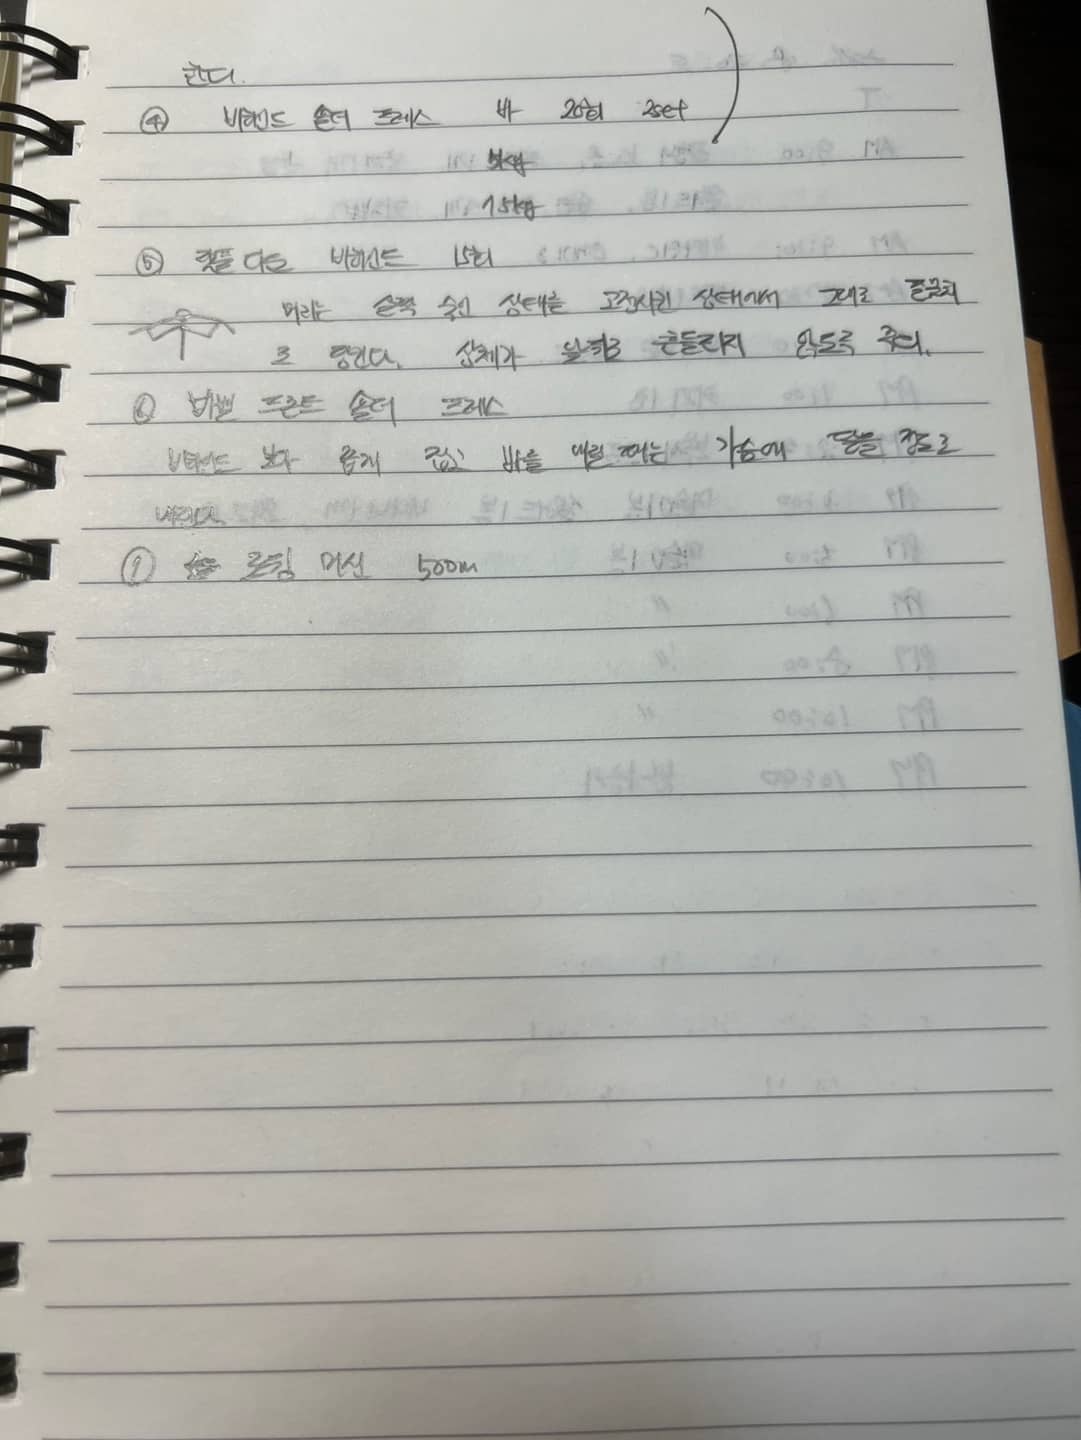 한다.
④ 비하인드 숄더 프레스 바 20회 2set
5kg
7.5kg
⑤ 풀 다운 비하인드 15회
머리는 살짝 숙인 상태를 고정시킨 상태에서 그대로 팔꿈치
로 당긴다. 상체가 앞뒤로 흔들리지 않도록 주의.
⑥ 바벨 프론트 숄더 프레스
비하인드 보다 좁게 잡고 바를 내릴 때는 가슴에 닿을 정도로
내린다.
⑦ 로잉 머신 500m